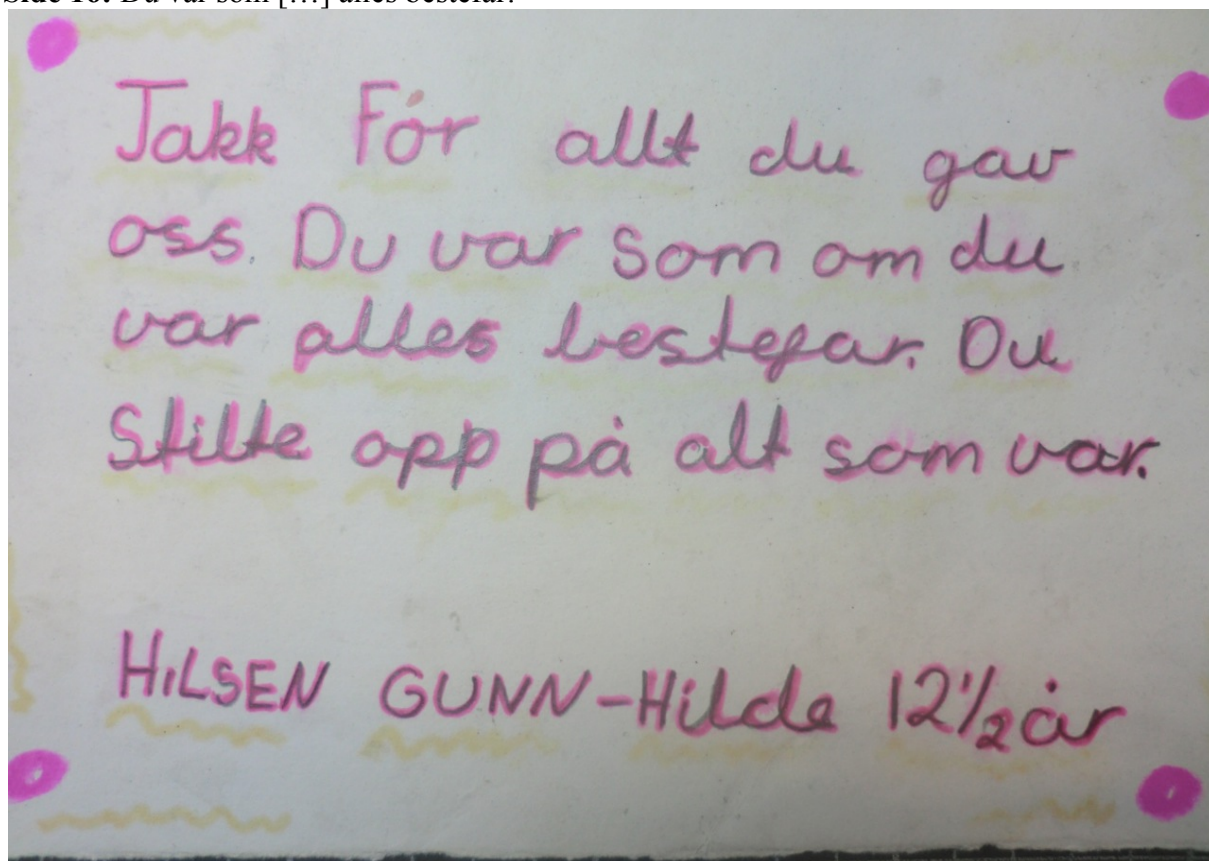 Side 16: Du var som […] alles bestefar.
Takk For allt du gav
oss. Du var som om du
var alles bestefar. Du
Stilte opp på alt som var.
HiLSEN GUNN-Hilde 12½ år